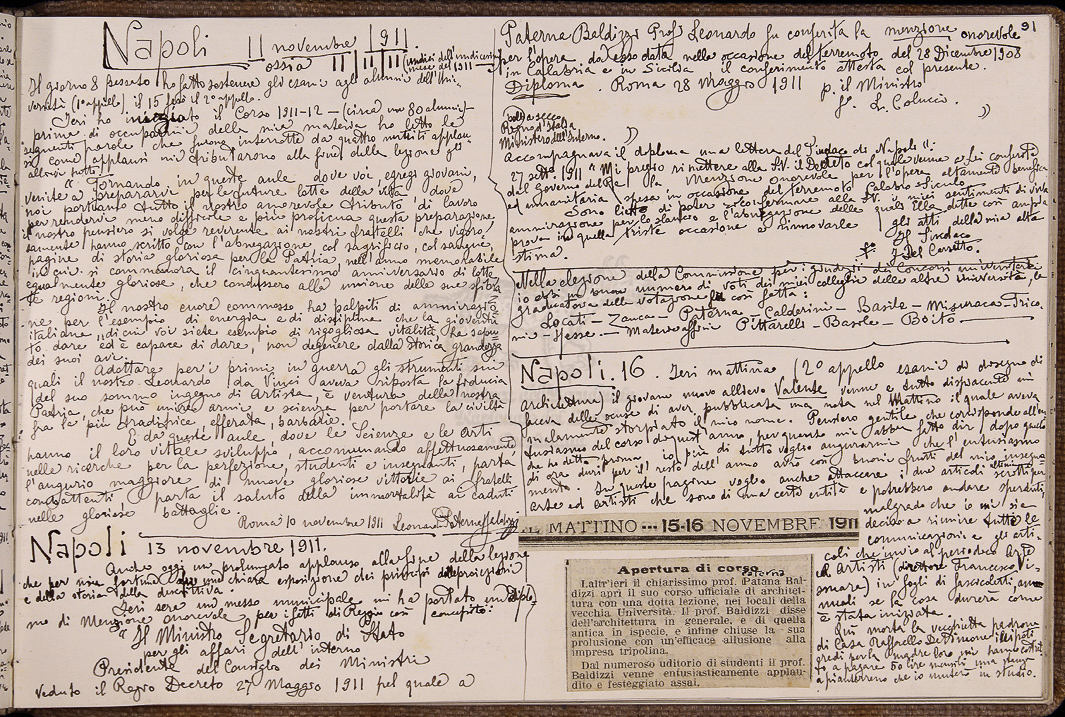 Napoli 11 novembre 1911
ossia 11 | 11 | 11
Il giorno 8 passato ho fatto sostenere gli esami agli alumni dell'Uni-
versità (1° appello), il 15 il 2° appello.
Ieri ho il Corso 1911-12 – (circa un 80 alunni) –
prima di occuparmi della mia materia ho letto le
seguenti parole che furono interrotte da quattro nutriti applau-
si come applausi mi tributarono alla fine della lezione gli
allievi tutti:
"Tornando, in queste aule dove voi, egregi giovani,
venite a prepararvi per le future lotte della vita, dove
noi portiamo tutto il nostro amorevole tributo di lavoro
per rendervi meno difficile e più proficua questa preparazione,
il nostro pensiero si volge reverente ai nostri fratelli che vigoro-
samente hanno scritto con l'abnegazione, col sagrificio, col sangue,
pagine di storia gloriosa per la Patria, nell'anno memorabile
in cui si commemora il cinquantesimo anniversario di lotte
egualmente gloriose, che condussero alla unione delle sue
regioni.
Il nostro cuore commosso ha palpiti di ammirazio-
ne per l'esempio di energia e di disciplina che la gioventù
italiana, di cui voi siete esempio di rigogliosa vitalità, ha sapu-
to dare ed è capace di dare, non degenere dalla storica grandezza
dei suoi avi.
Adottare per i primi in guerra gli strumenti sui
quali il nostro Leonardo da Vinci aveva riposta la fiducia
del suo sommo ingegno di Artista, è ventura della nostra
Patria, che può unire armi e scienza per portare la civiltà
fra la più efferata barbarie.
E da queste aule, dove le Scienze e le Arti
hanno il loro vitale sviluppo, accomunando affettuosamente
nelle ricerche per la perfezione, studenti e insegnanti, parta
l'augurio maggiore di nuove gloriose vittorie ai fratelli
combattenti parta il saluto della immortalità ai caduti
nelle gloriose battaglie.
Roma 10 novembre 1911 Leonardo Paterna Baldizzi
Napoli 13 novembre 1911.
Anche oggi un prolungato applauso alla fine della lezione
che per mia fortuna chiara esposizione dei principi delle proiezioni
e della storia della descrittiva.
Ieri sera un messo municipale mi ha portato un Diplo-
mo di Menzione onorevole per i fatti di Reggio così concepito:
"Il Ministro Segretario di Stato
per gli affari dell'interno
Presidente del Consiglio dei Ministri
Veduto il Regio Decreto 27 Maggio 1911 pel quale a
91
Paterna Baldizzi Prof Leonardo fu conferita la menzione onorevole
per l'opera da esso data nelle occasione del terremoto del 28 Dicembre 1908
in Calabria e in Sicilia il conferimento attesta col presente
Diploma. Roma 28 Maggio 1911 p. il Ministro
L. Colucci.
Regno d'Italia
Ministero dell'Interno.
Accompagnava il diploma una lettera del Sindaco di Napoli:
27 1911 "Mi pregio rimettere alla SV. il col quale venne a Lei conferita
dal governo del Re la Menzione onorevole per l'opera altamente benefica
ed umanitaria spesa in occasione del terremoto Calabro siculo.
Sono lieto di poter riconfermare alla SV. i miei sentimenti di viva
ammirazione per lo slancio e l'abnegazione delle quali Ella dette così ampia
prova in quella triste occasione a rinnovarle gli atti della mia alta
stima. Il Sindaco
Del Carretto.
Nella elezione della Commissione per i giudizi dei Concorsi universitari
io ebbi un buon numero di voti dei miei colleghi delle altre Università, la
graduatoria della votazione fu così fatta:
Locati – Zanca – Paterna – Calderini – Basile – Misuraca – Trico-
mi – Hesse – Pittarelli – Basile – Boito
Napoli. 16. Ieri mattina (2° appello esami di disegno di
architettura) il giovane nuovo allievo Valente venne e tutto dispiaciuto mi
faceva delle scuse di aver pubblicata una nota nel Mattino il quale aveva
malamente storpiato il mio nome. Pensiero gentile che corrisponde all'en-
tusiasmo del corso di quest'anno, per quanto mi abbia fatto dir, dopo quello
che ho detto prima, io più di tutto voglio augurarmi che l'entusiasmo
di ora duri per il resto dell'anno avrò così buoni frutti del mio insegna-
mento. In queste pagine voglio anche attaccare i due articoli
Arte ed artisti che sono di una certa entità e potrebbero andare sperduti
malgrado che io mi sia
deciso a riunire tutte le
comunicazioni e gli arti-
coli che invio al periodico Arte
ed Artisti (direttore Francesco Vi-
smara) in fogli di fascicoletti, in
modi se la cosa durerà come
è stata iniziata.
Qui morta la vecchietta padrona
di Casa Raffaella De Simone
a pagare 50 lire mensili una stanza
a pianterreno che io muterò in studio.
IL MATTINO --- 15-16 NOVEMBRE 1911
Apertura di corso
Paterna
L'altr'ieri il chiarissimo prof. Patana Bal-
dizzi aprì il suo corso ufficiale di architet-
tura con una dotta lezione, nei locali della
vecchia Università. Il prof. Baldizzi disse
dell'architettura in generale, e di quella
antica in ispecie, e infine chiuse la sua
prolusione con un'efficace allusione alla
impresa tripolina.
Dal numeroso uditorio di studenti il prof.
Baldizzi venne entusiasticamente applau-
dito e festeggiato assai.